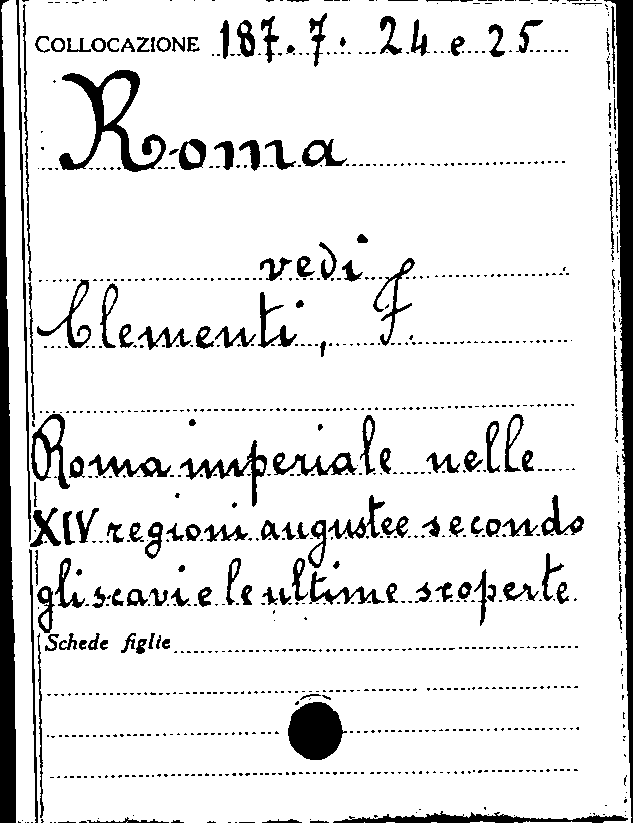 COLLOCAZIONE 187.7. 24 e 25
Roma
vedi
Clementi, F.
Roma imperiale nelle
XIV regioni augustee secondo
gli scavi e le ultime scoperte
Schede figlie